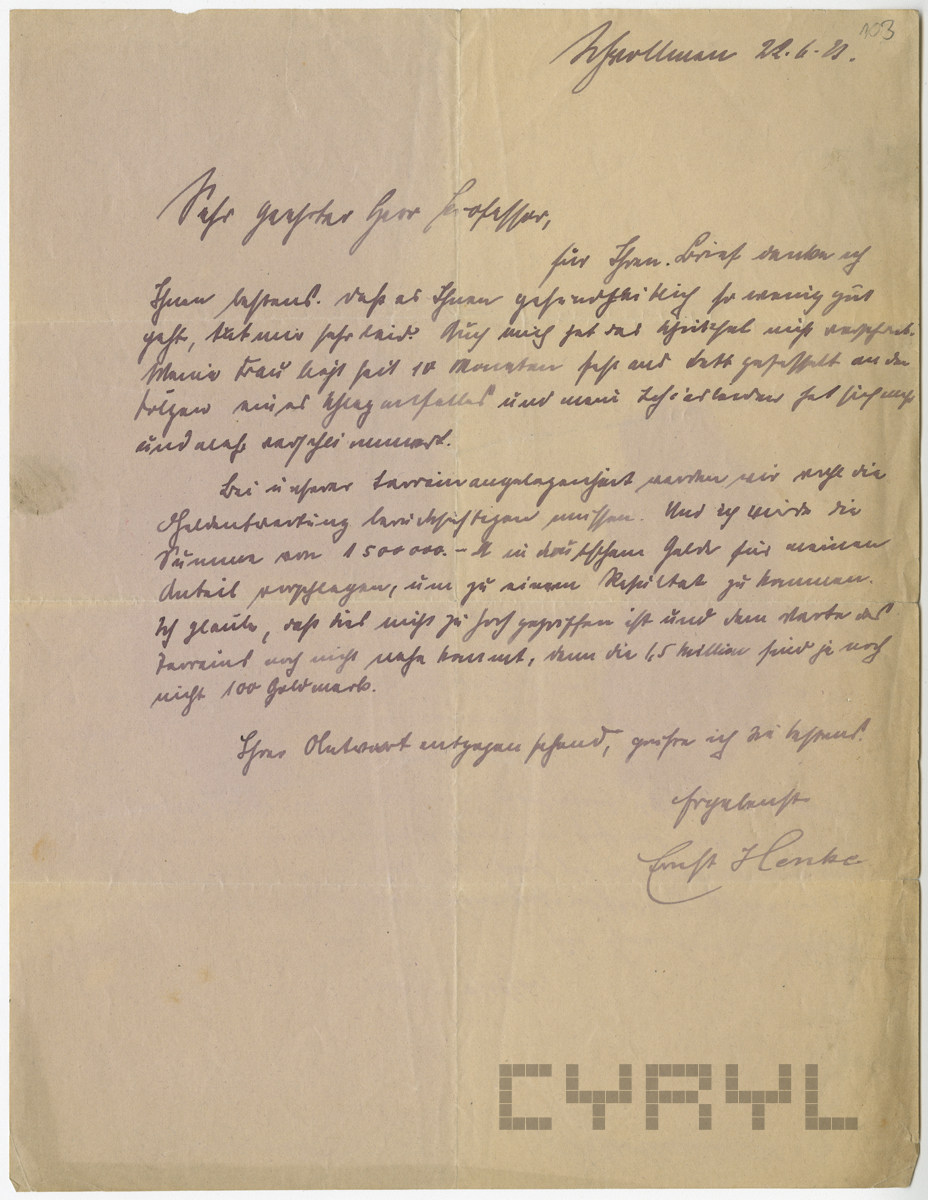 103
22.6.23.
Sehr geehrter Herr Professor,
für Ihren Brief danke ich
Ihnen bestens. Daß es Ihnen gesundheitlich so wenig gut
geht, tut mir sehr leid. Auch mich hat das Schicksal nicht verschont.
Meine Frau liegt seit 10 Monaten fest ans Bett gefesselt an den
Folgen eines Schlaganfalles und mein Ischiasleiden hat sich mehr
und mehr verschlimmert.
Bei unserer Terrainangelegenheit werden wir wohl die
Geldentwertung berücksichtigen müssen. Und ich würde die
Summe von 1500000.- M in deutschem Gelde für meinen
Anteil vorschlagen, um zu einem Resultat zu kommen.
Ich glaube, daß dies nicht zu hoch gegriffen ist und dem Werte des
Terrains noch nicht nahe kommt, denn die 1,5 Million sind ja noch
nicht 100 Goldmark.
Ihrer Antwort entgegen sehend, grüße ich Sie bestens.
Ergebenst
Ernst Henke
CYRYL